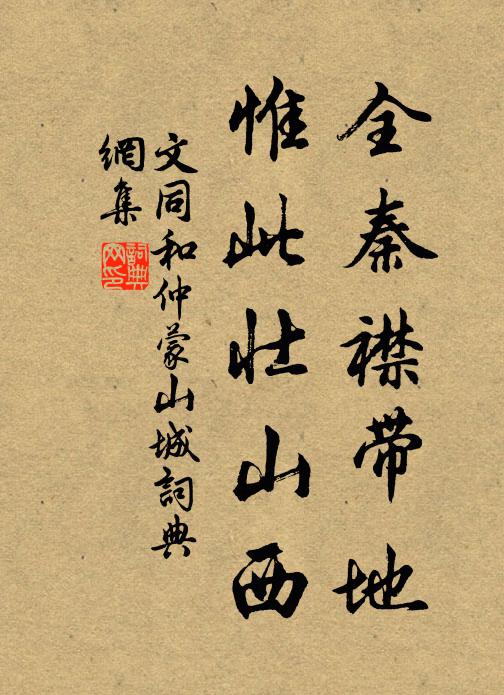 全秦襟带地
惟此壮山西
文同和仲蒙山城詞典
網集
詞典
网印